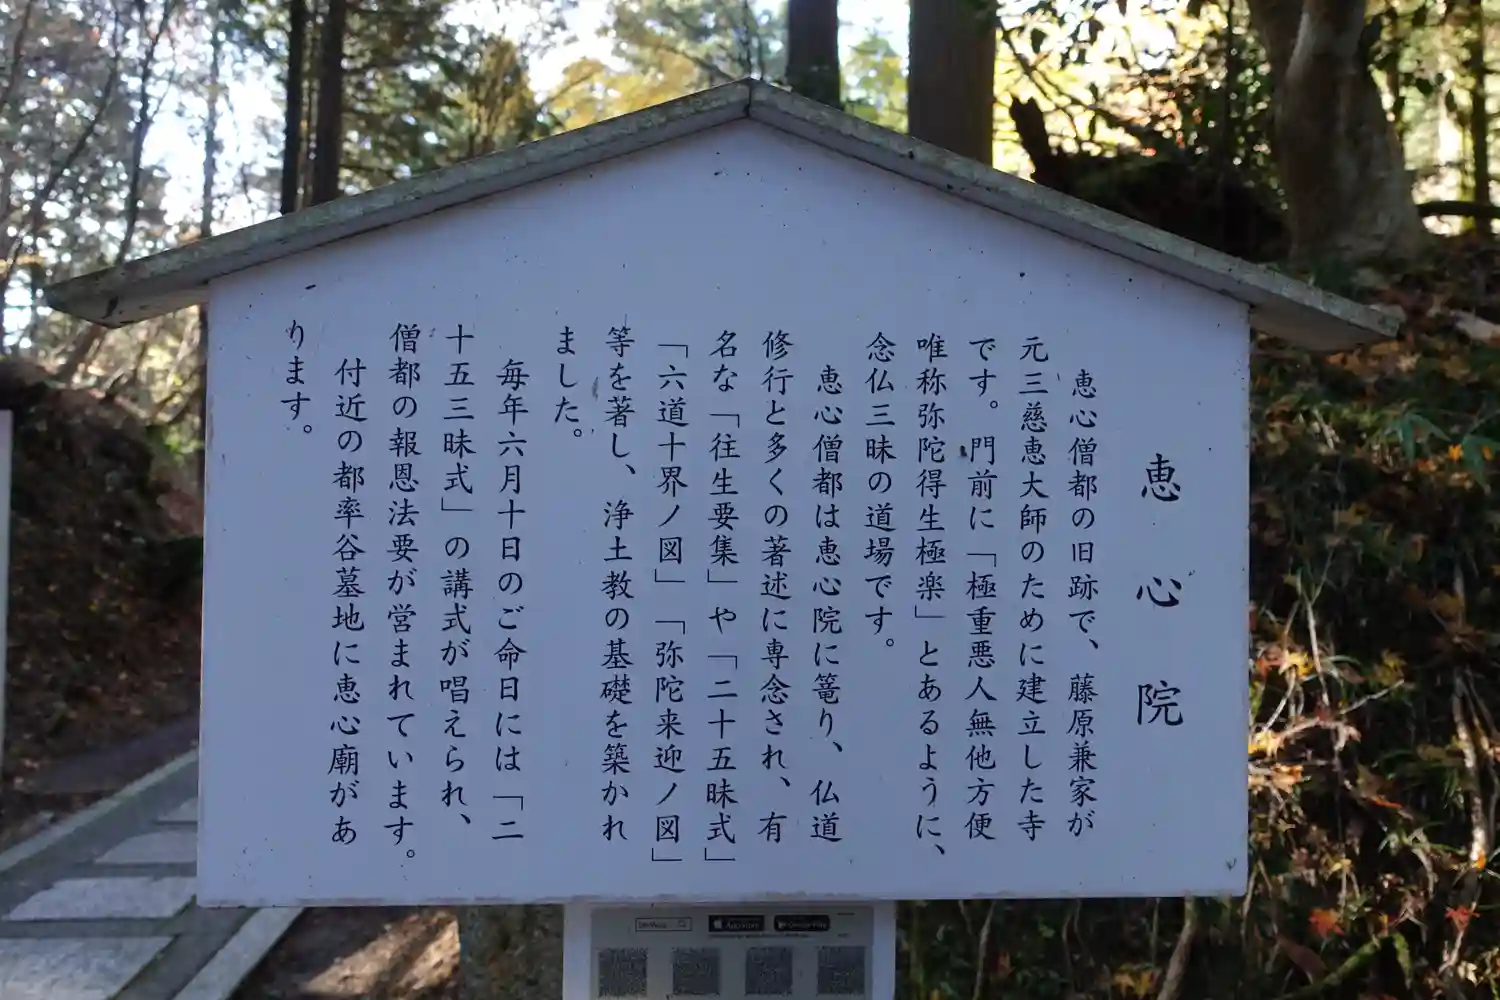 恵心院
恵心僧都の旧跡で、藤原兼家が
元三慈恵大師のために建立した寺
です。門前に「極重悪人無他方便
唯称弥陀得生極楽」とあるように、
念仏三昧の道場です。
恵心僧都は恵心院に篭り、仏道
修行と多くの著述に専念され、有
名な「往生要集」や「二十五昧式」
「六道十界ノ図」「弥陀来迎ノ図」
等を著し、浄土教の基礎を築かれ
ました。
毎年六月十日のご命日には「二
十五三昧式」の講式が唱えられ、
僧都の報恩法要が営まれています。
付近の都率谷墓地に恵心廟があ
ります。
App Store
Google Play